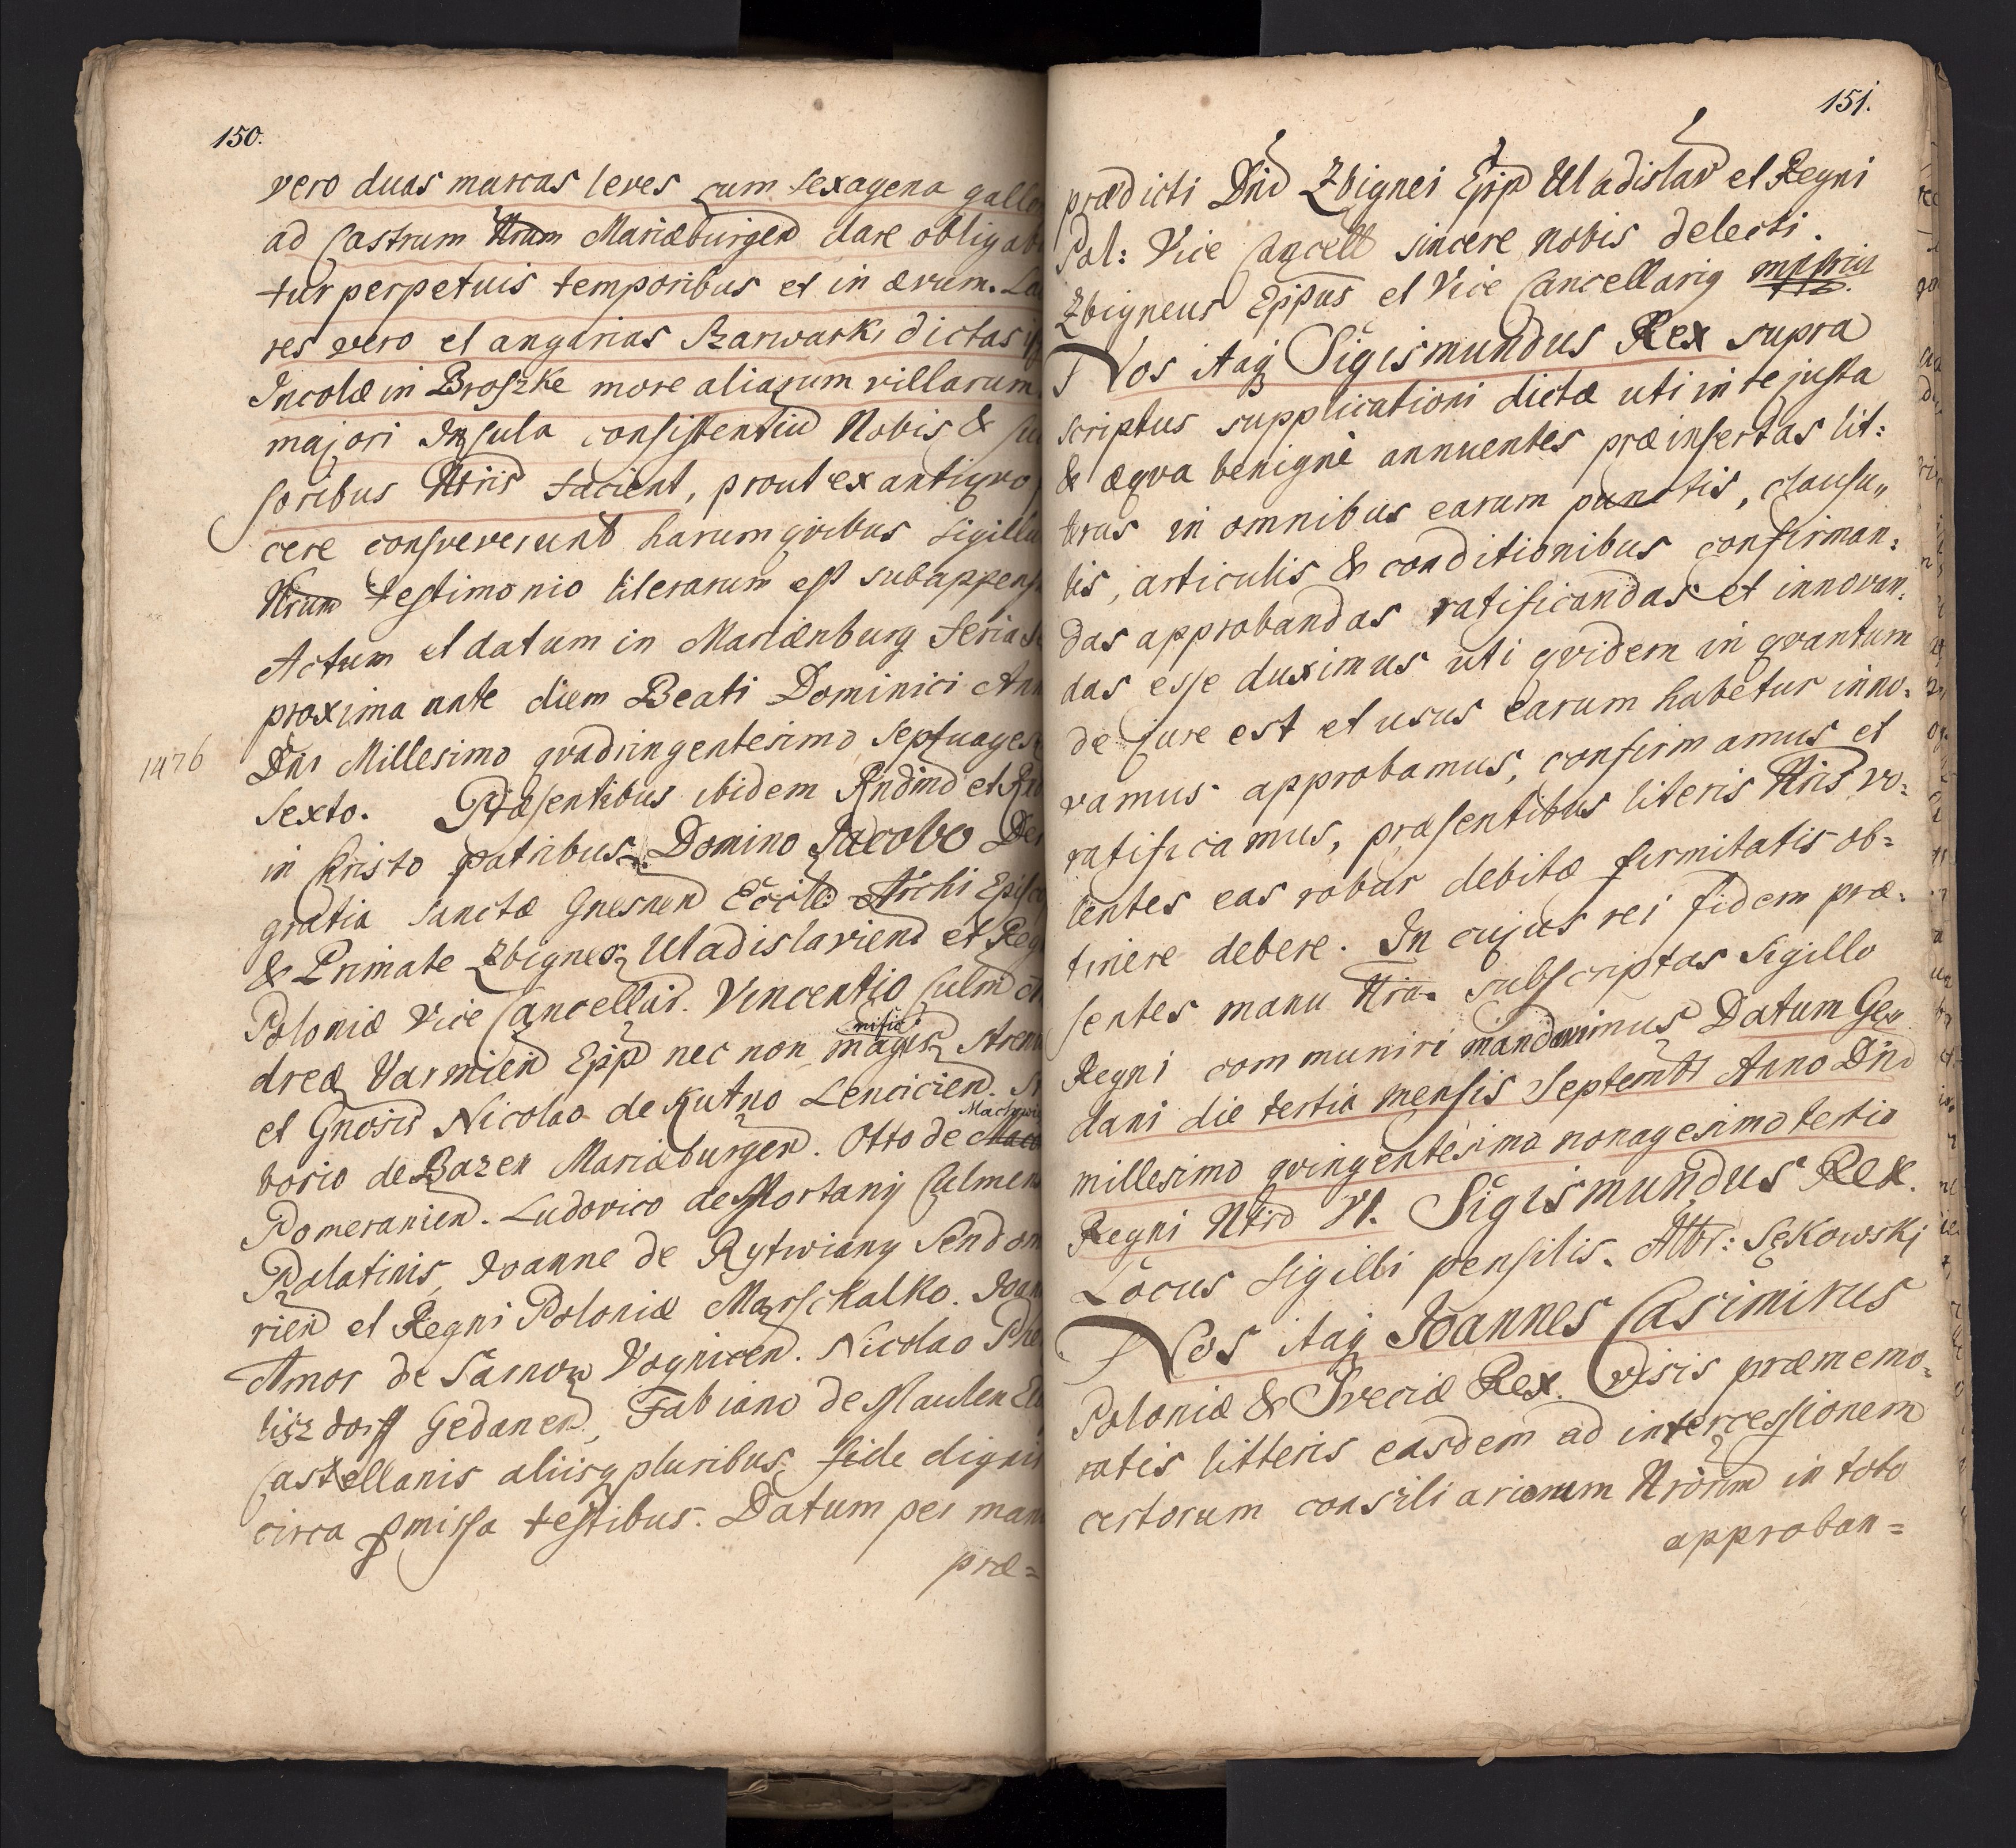 150.
vero duas marcas leves cum sexagena gallo
ad Castrum Nrum Mariæburgen dare obligab
tur perpetuis temporibus et in ævum. La
res vero et angarias Szarwarki dictas
Incolæ in Broszke more aliarum villarum
majori Insula consistentiu Nobis & su
soribus Nris facient, prout ex antiqvo
cere consveverunt harum qvibus sigillu
Nrum testimonio literarum est subappens
Actum et datum in Mariænburg feria
proxima ante diem Beati Dominici Ann
1476
Dni Millesimo qvadringentesimo septuages
sexto. Præsentibus ibidem Rndmo et
in Christo patribus Domino Jacobo Dei
gratia sanctæ Gnesnen Eccle Archi Episco
& Primate Zbigneo Uladislavien et Reg
Poloniæ Vice Cancellar. Vincentio Culm
drea Varmien Epp nec non magis
nifio
et Gnosis Nicolao de Kutno Lencicien.
Machwi
borio de Bazen Mariæburgen. Otto de
Pomeranien. Ludovico de Mortany Culmen
Palatinis, Joanne de Rytwiany Sendom
rien et Regni Poloniæ Marschalko. Joan
Amor de Tarnow Voynicen. Nicolao
liszdorff Gedanen, Fabiano de Maulen
Castellanis aliisq pluribus fide dignis
circa pmissa testibus. Datum per man
præ=
151.
prædicti Dni Zbignei Epp Uladislav et Regni
Pol: Vice Cancell sincere nobis delecti.
Zbigneus Eppus et Vice Cancellarig mppria
Nos itaq Sigismundus Rex supra
scriptus supplicationi dictæ uti in te justa
& æqva benignè annuentes præinsertas lit:
teras in omnibus earum punctis, clausu„
lis, articulis & conditionibus confirman:
das approbandas ratificandas et innovan:
das esse duximus uti qvidem in qvantum
de jure est et usus earum habetur inno:
vamus approbamus, confirmamus et
ratificamus, præsentibus literis Nris vo:
lentes eas robur debitæ firmitatis ob=
tinere debere. In cujus rei fidem præ:
sentes manu Nra subscriptas Sigillo
Regni communiri mandavimus Datum Ge„
dani die tertia mensis Septembr Anno Dni
millesimo qvingentesimo nonagesimo tertio
Regni Ntri VI. Sigismundus Rex.
Locus sigilli pensilis. Albr: Sękowski
Nos itaq Joannes Casimirus
Poloniæ & Sveciæ Rex. Visis præmemo=
ratis litteris easdem ad intercessionem
certorum consiliariorum Nrorum in toto
approban=